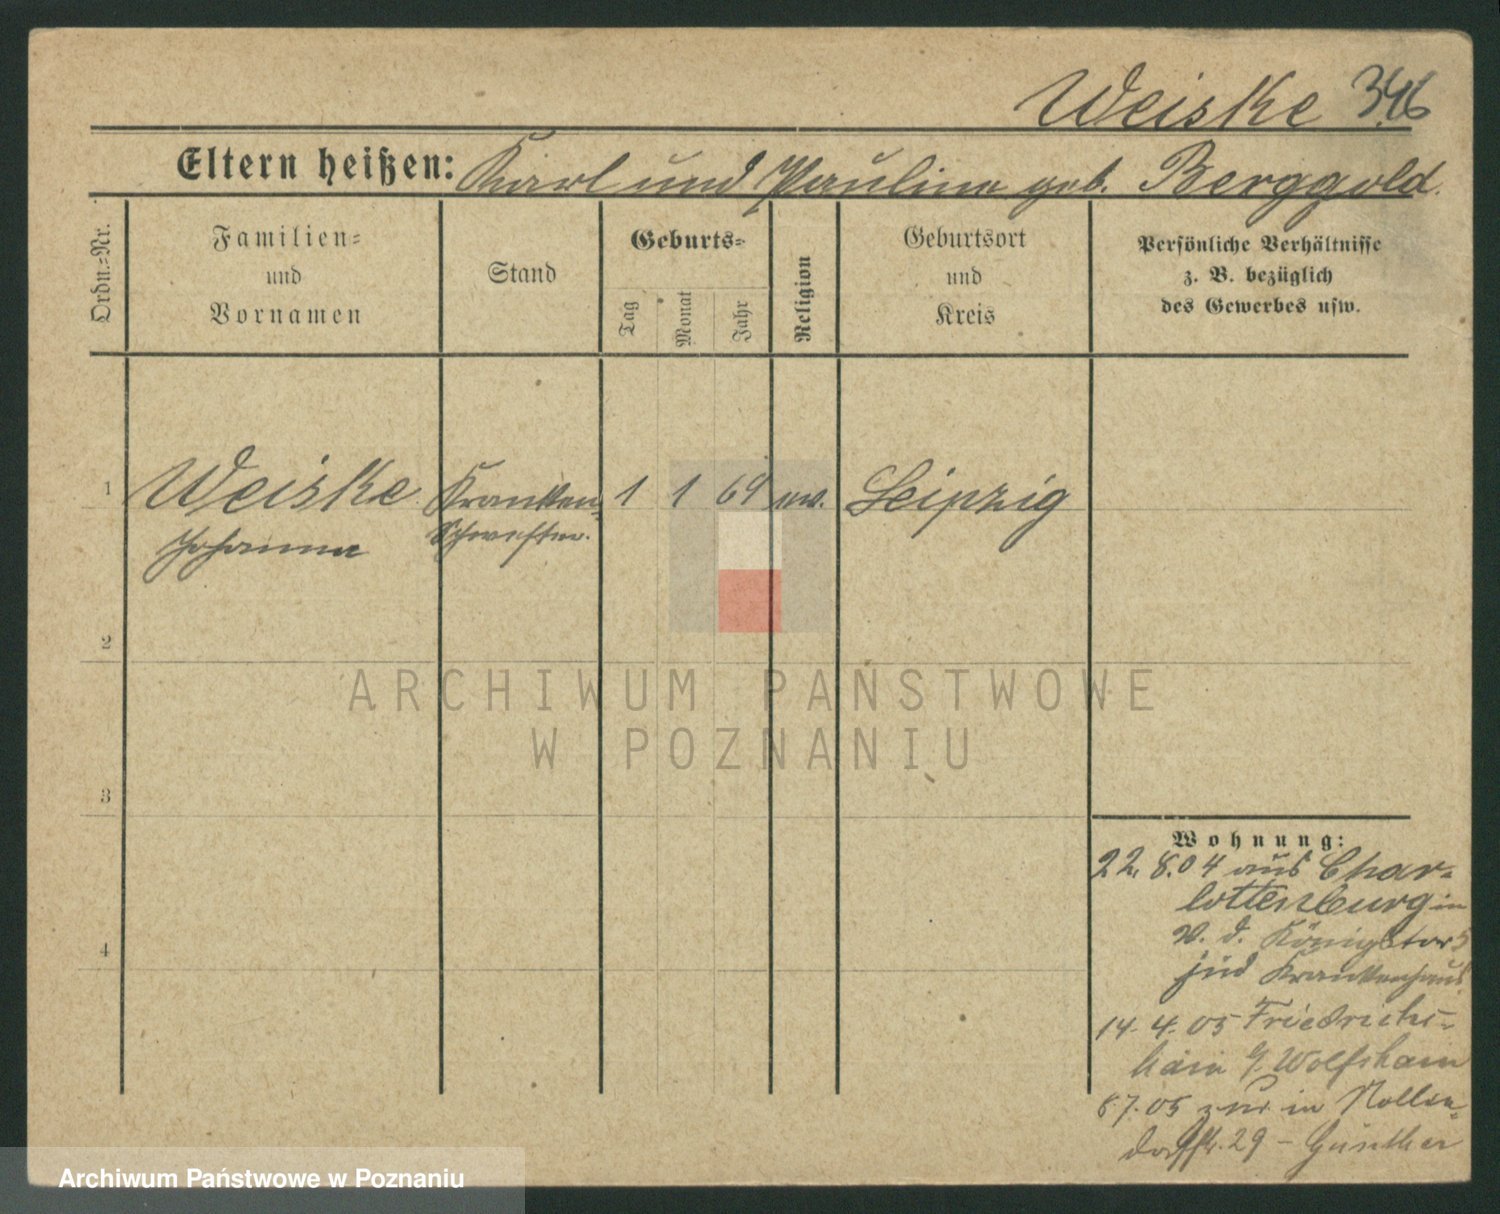 Weiske 346
Eltern heißen: Karl und Pauline geb. Berggold.
Ordn.-Nr.
Familien-
und
Vornamen
Stand
Geburts-
Tag
Monat
Jahr
Religion
Geburtsort
und
Kreis
Persönliche Verhältnisse
z. B. bezüglich
des Gewerbes usw.
1 Weiske Kranken- 1 1 69 ev. Leipzig
Johanna schwester.
2
ARCHIWUM PAŃSTWOWE
W POZNANIU
3
Wohnung:
22. 8. 04 aus Char-
lottenburg in
v. d. Königstor 5
jüd Krankenhaus
4
14. 4. 05 Friedrichs-
hain Wolfshain
8. 7. 05 zur in Nollen-
dorffstr. 29 - Günther
Archiwum Państwowe w Poznaniu